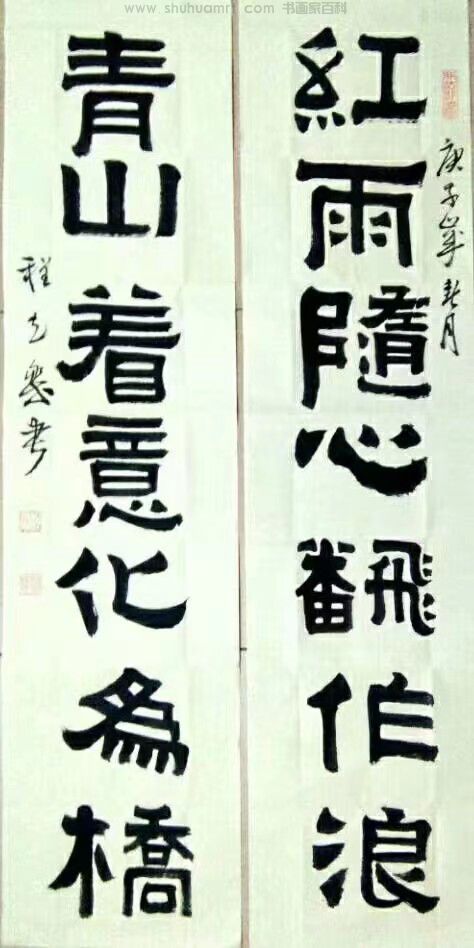 www.shuhuamr.com 书画家百科
紅雨隨心飜作浪
庚子年春月
青山着意化為橋
程
書